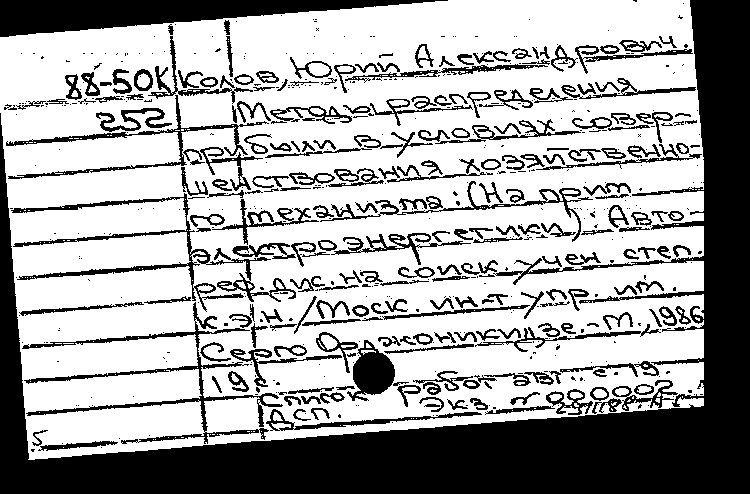 88-50К Колов, Юрий Александрович.
252 Методы распределения
прибыли в условиях совер-
шенствования хозяйственно-
го механизма: (На прим.
электроэнергетики): Авто-
реф. дис. на соиск. учен. степ.
к.э.н. / Моск. ин-т упр. им.
Серго Орджоникидзе. - М., 1986
19 с.
Список работ авт.: с. 19.
Дсп. Экз. № 000002
5